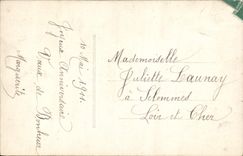 10 Mai 1911.
Joyeux Anniversaire
Vœux de Bonheur
Marguerite
Mademoiselle
Juliette Launay
à Selommes
Loir et Cher